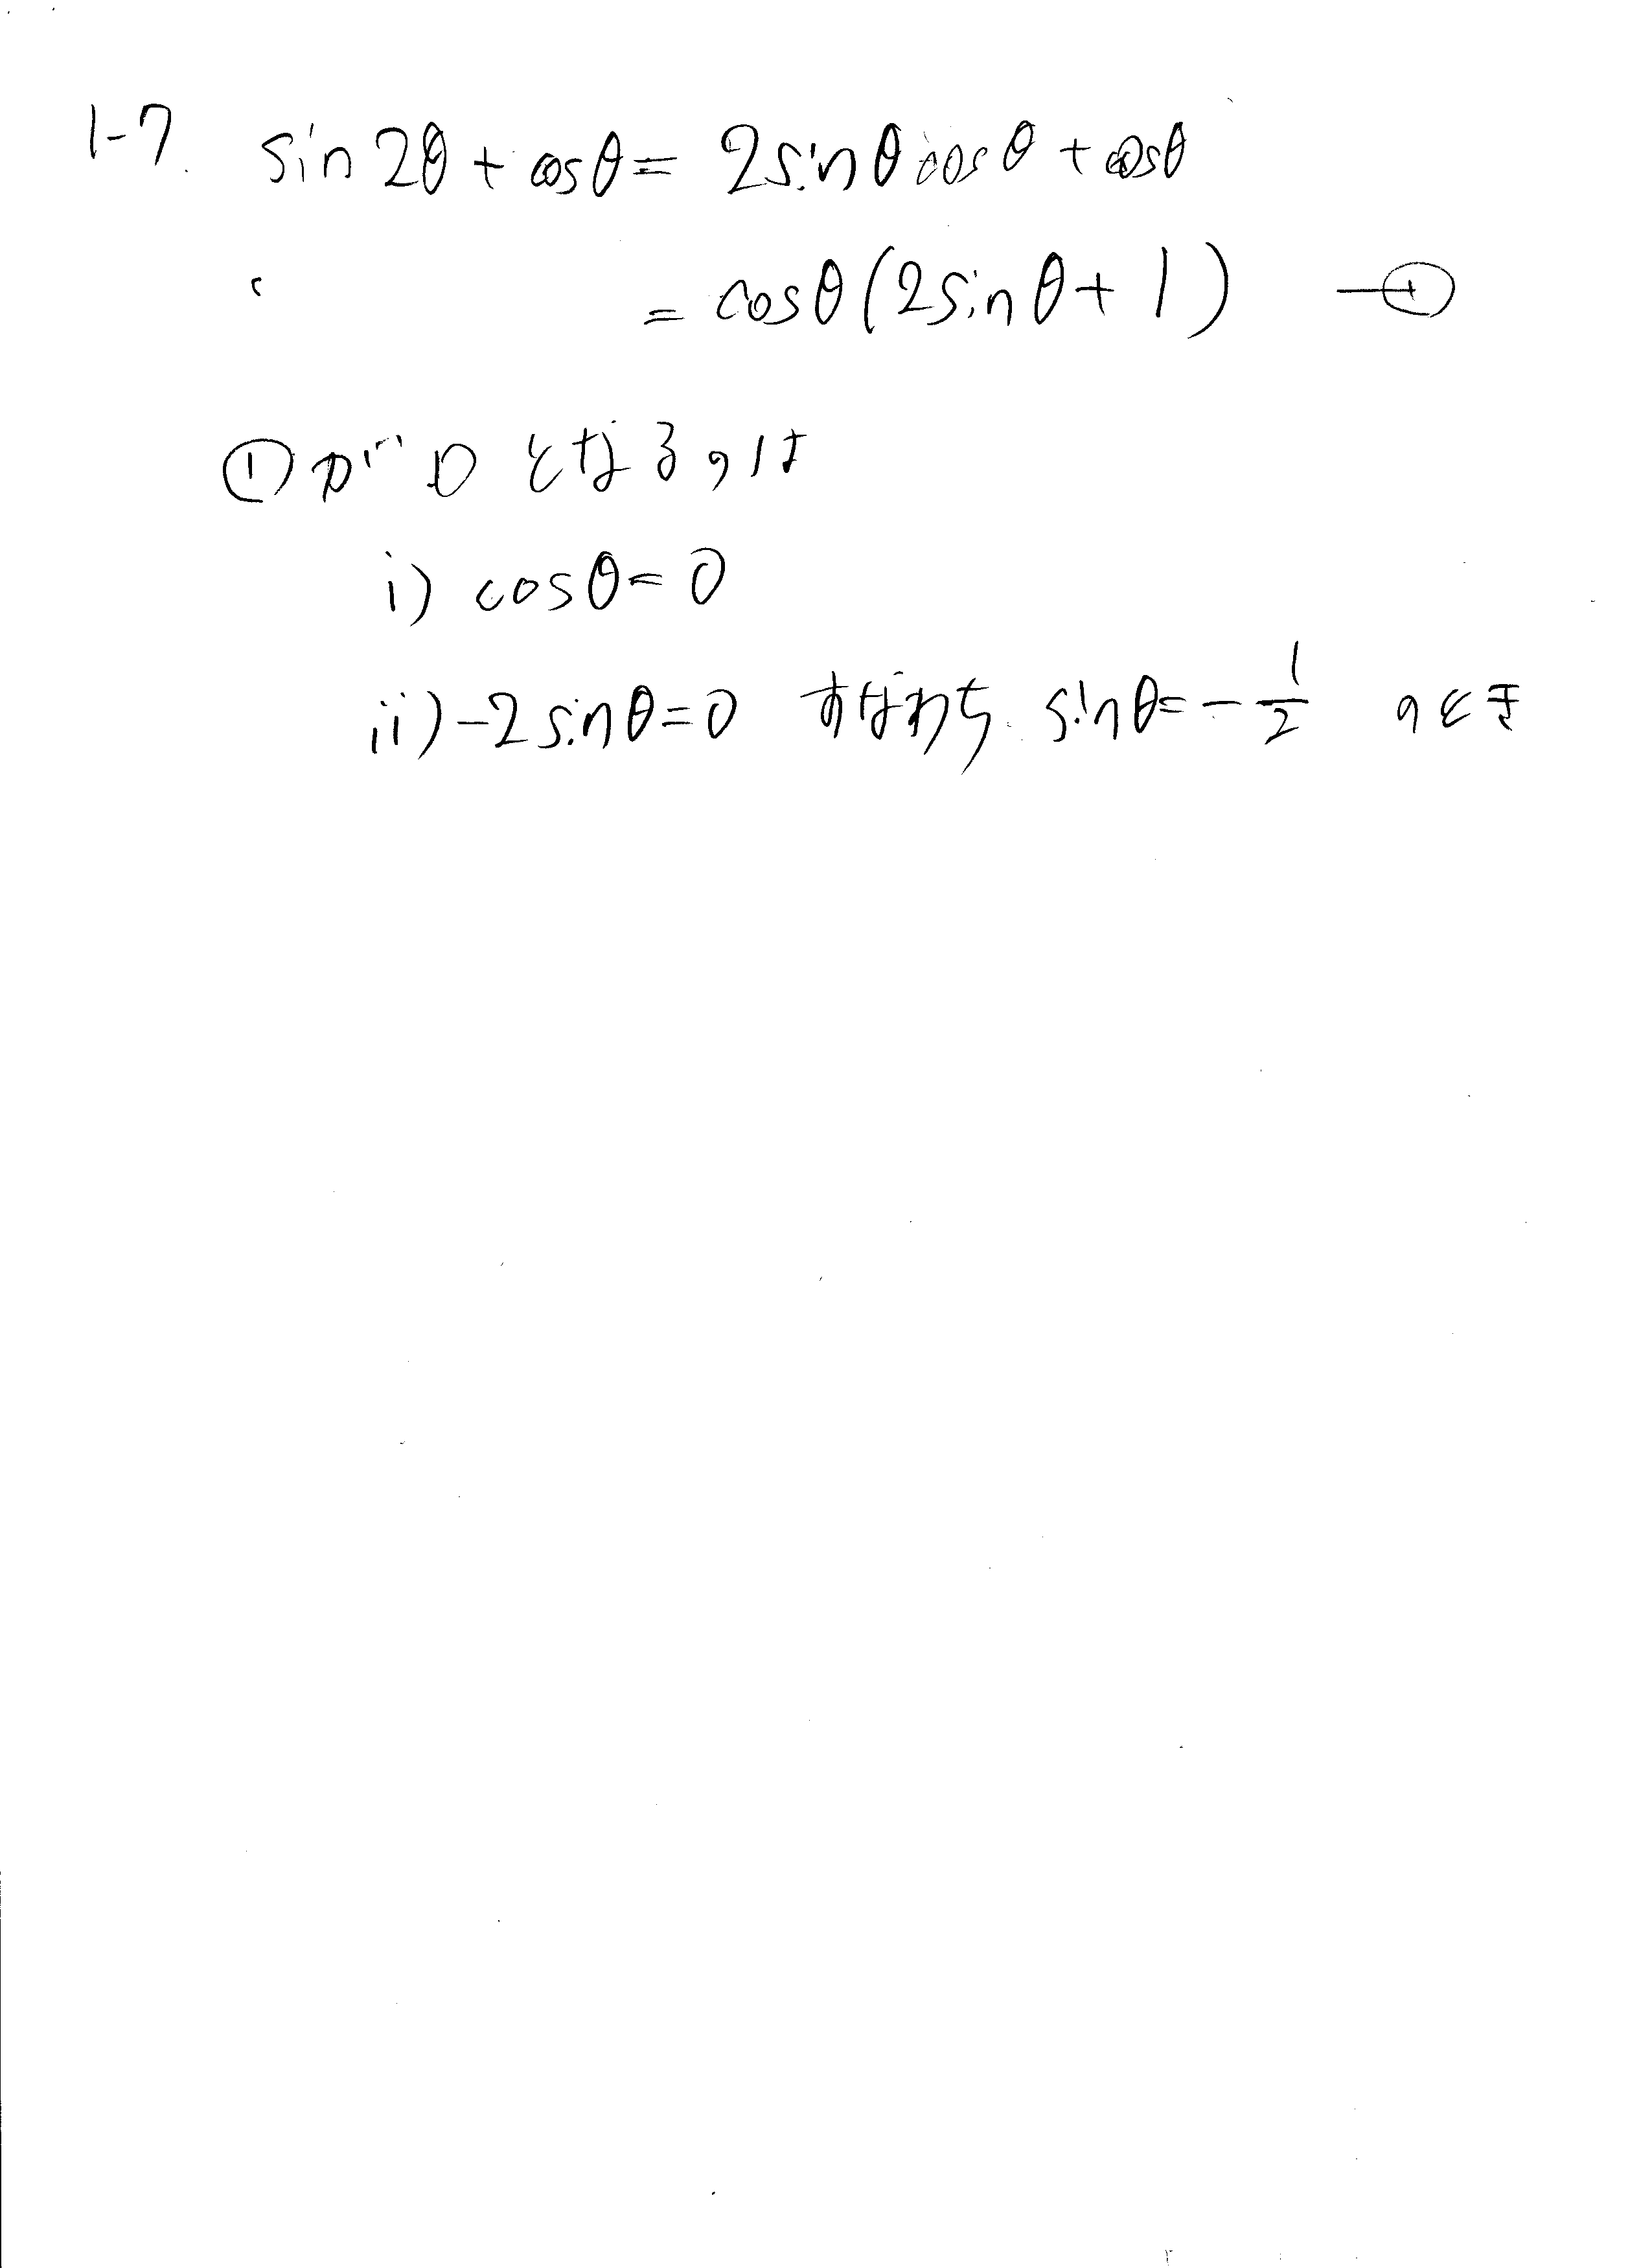 1-7. sin2θ + cosθ = 2sinθcosθ + cosθ
= cosθ(2sinθ+1) ―①
①が0となるのは
i) cosθ=0
ii) -2sinθ=0 すなわち sinθ=-1/2 のとき